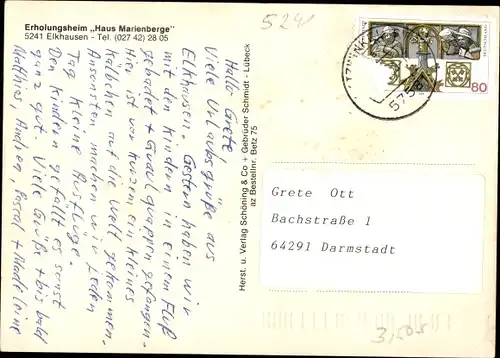 Erholungsheim „Haus Marienberge"
5241 Elkhausen - Tel. (027 42) 28 05
Hallo Grete,
Viele Urlaubsgrüße aus
Elkhausen. Gestern haben wir
mit den Kindern in einem Fluß
gebadet + Quaulquappen gefangen.
Hier ist vor kurzem ein kleines
Kälbchen auf die Welt gekommen.
Ansonsten machen wir jeden
Tag kleine Ausflüge.
Den Kindern gefällt es sonst
ganz gut. Viele Grüße + bis bald
Matthias, Andrea, Pascal + Madeleine
Herst. u. Verlag Schöning & Co + Gebrüder Schmidt - Lübeck
az Bestellnr. Betz 75
5241
80
Grete Ott
Bachstraße 1
64291 Darmstadt